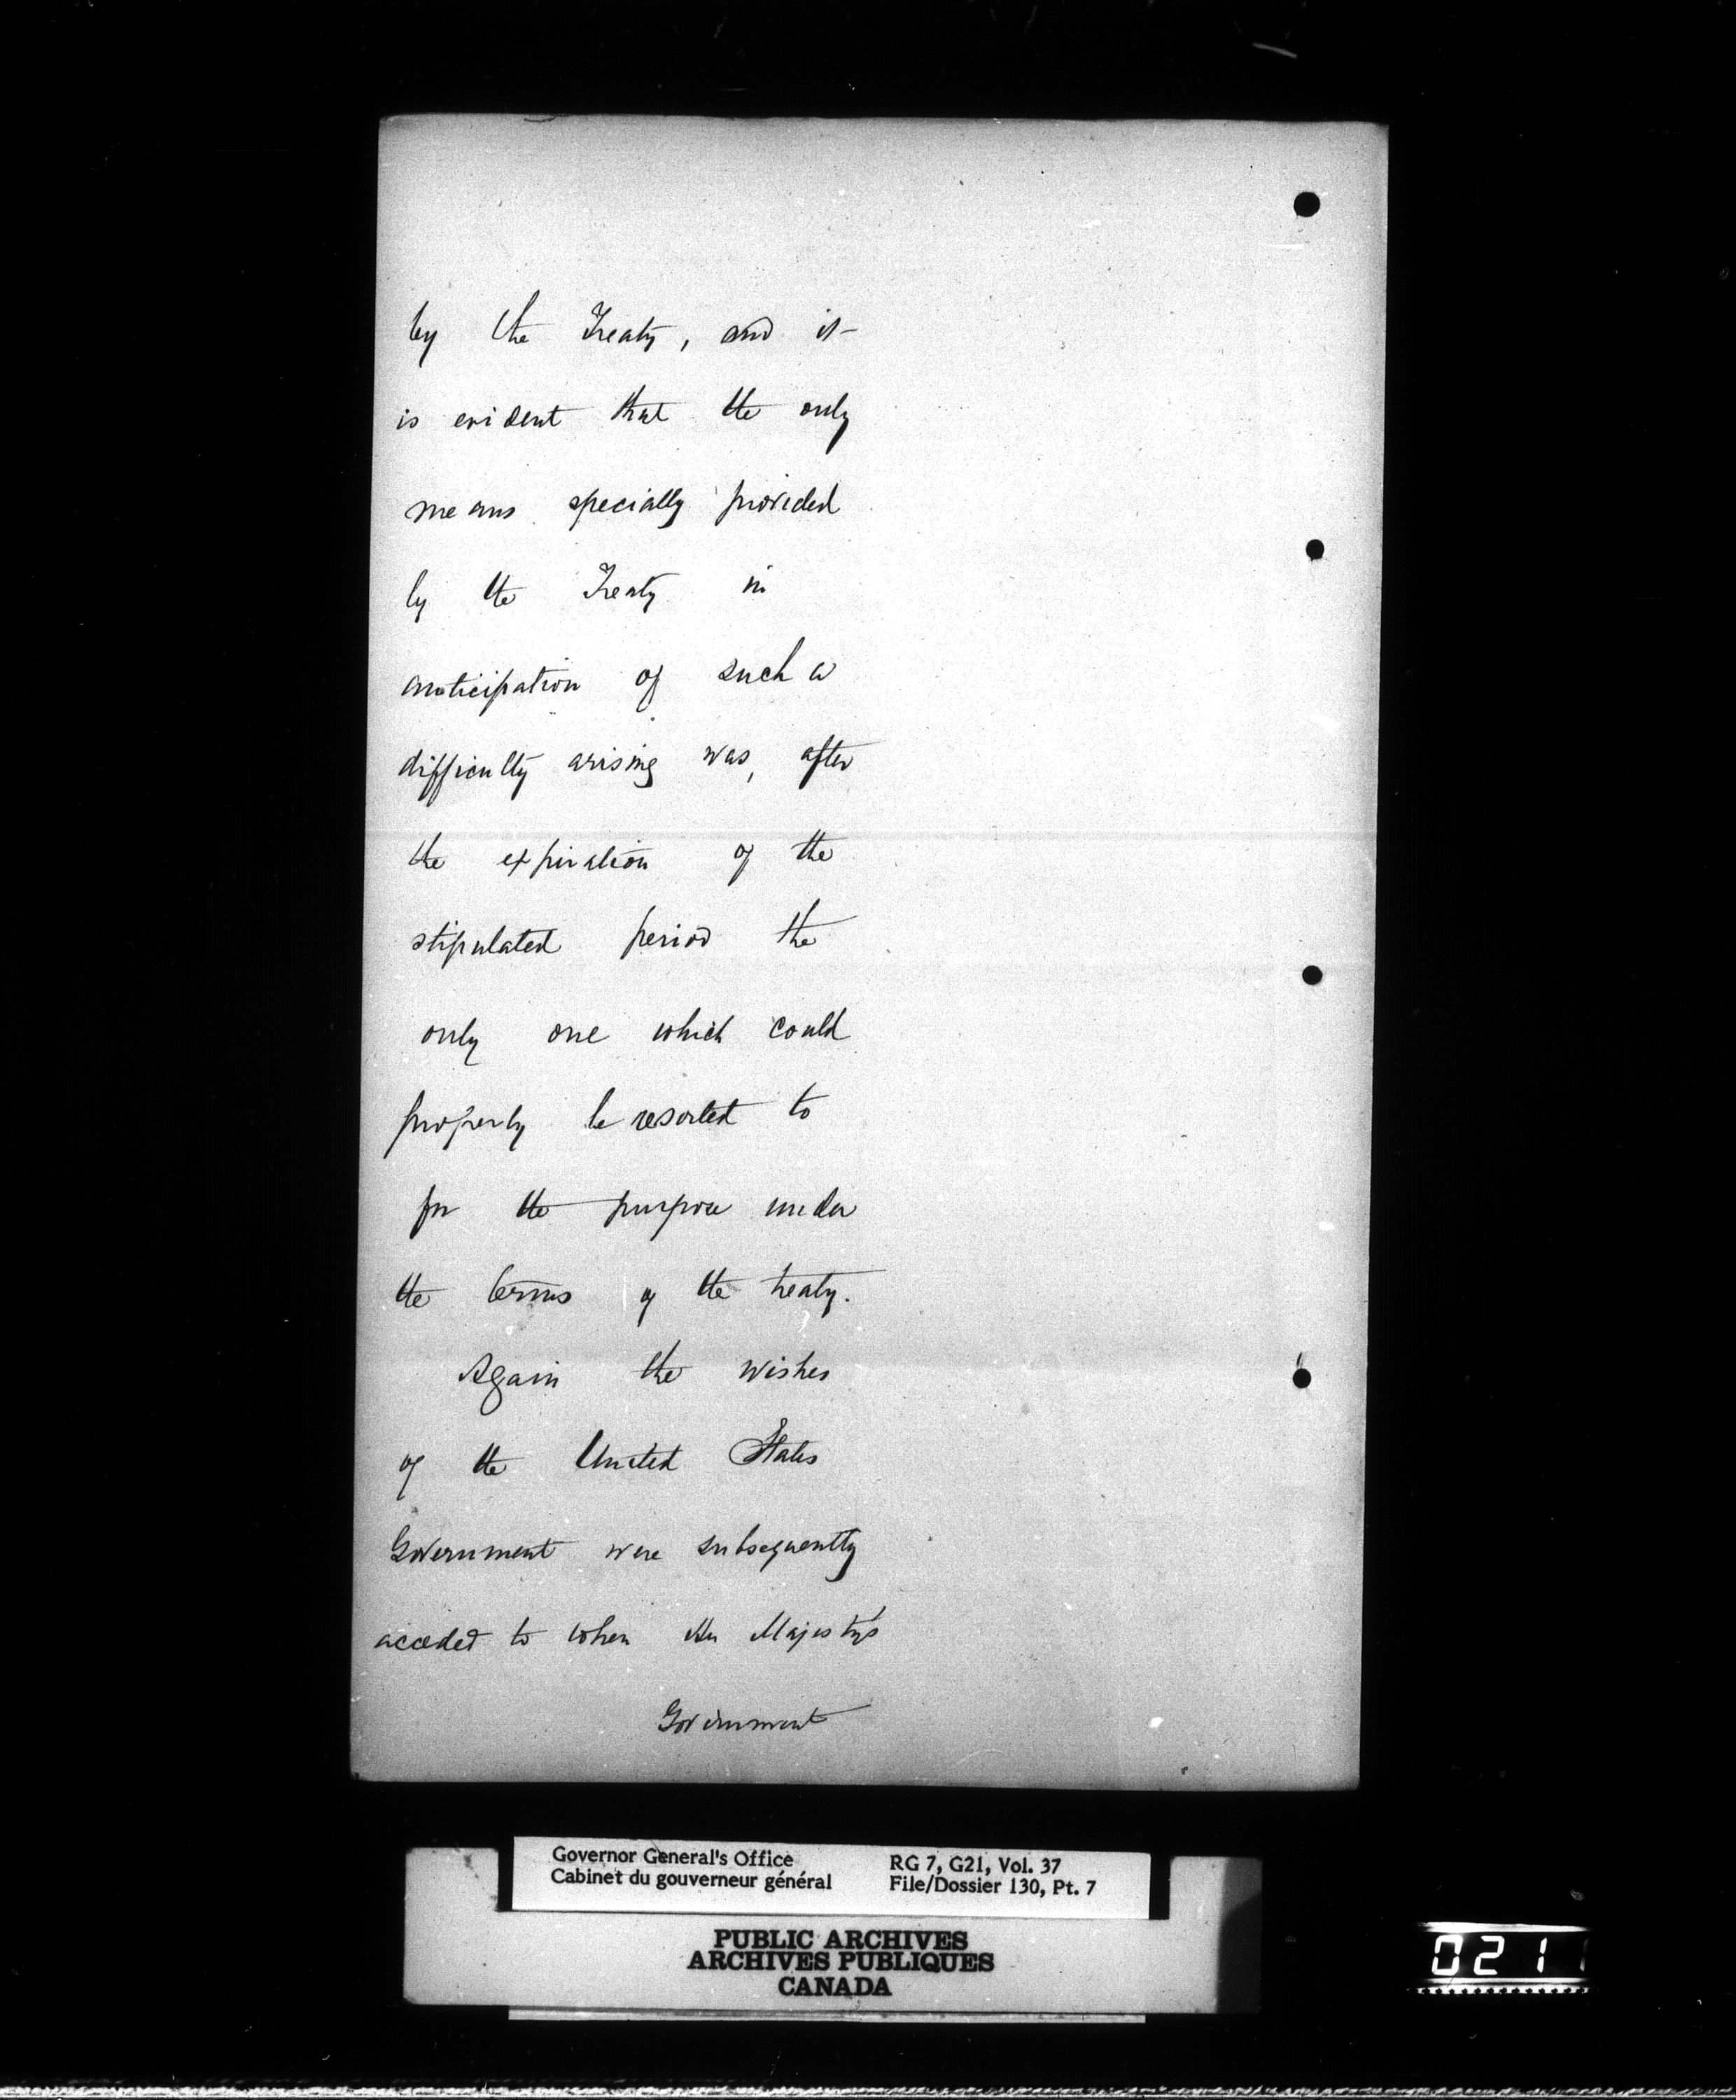 by the Treaty, and it
is evident that the only
means specially provided
by the Treaty in
anticipation of such a
difficulty arising was, after
the expiration of the
stipulated period the
only one which could
properly be resorted to
for the purpose under
the terms of the treaty.
Again the wishes
of the United States
Government were subsequently
acceded to when Her Majesty's
Government
Governor General's Office
Cabinet du gouverneur général
RG 7, G21, Vol. 37
File/Dossier 130, Pt. 7
PUBLIC ARCHIVES
ARCHIVES PUBLIQUES
CANADA
021